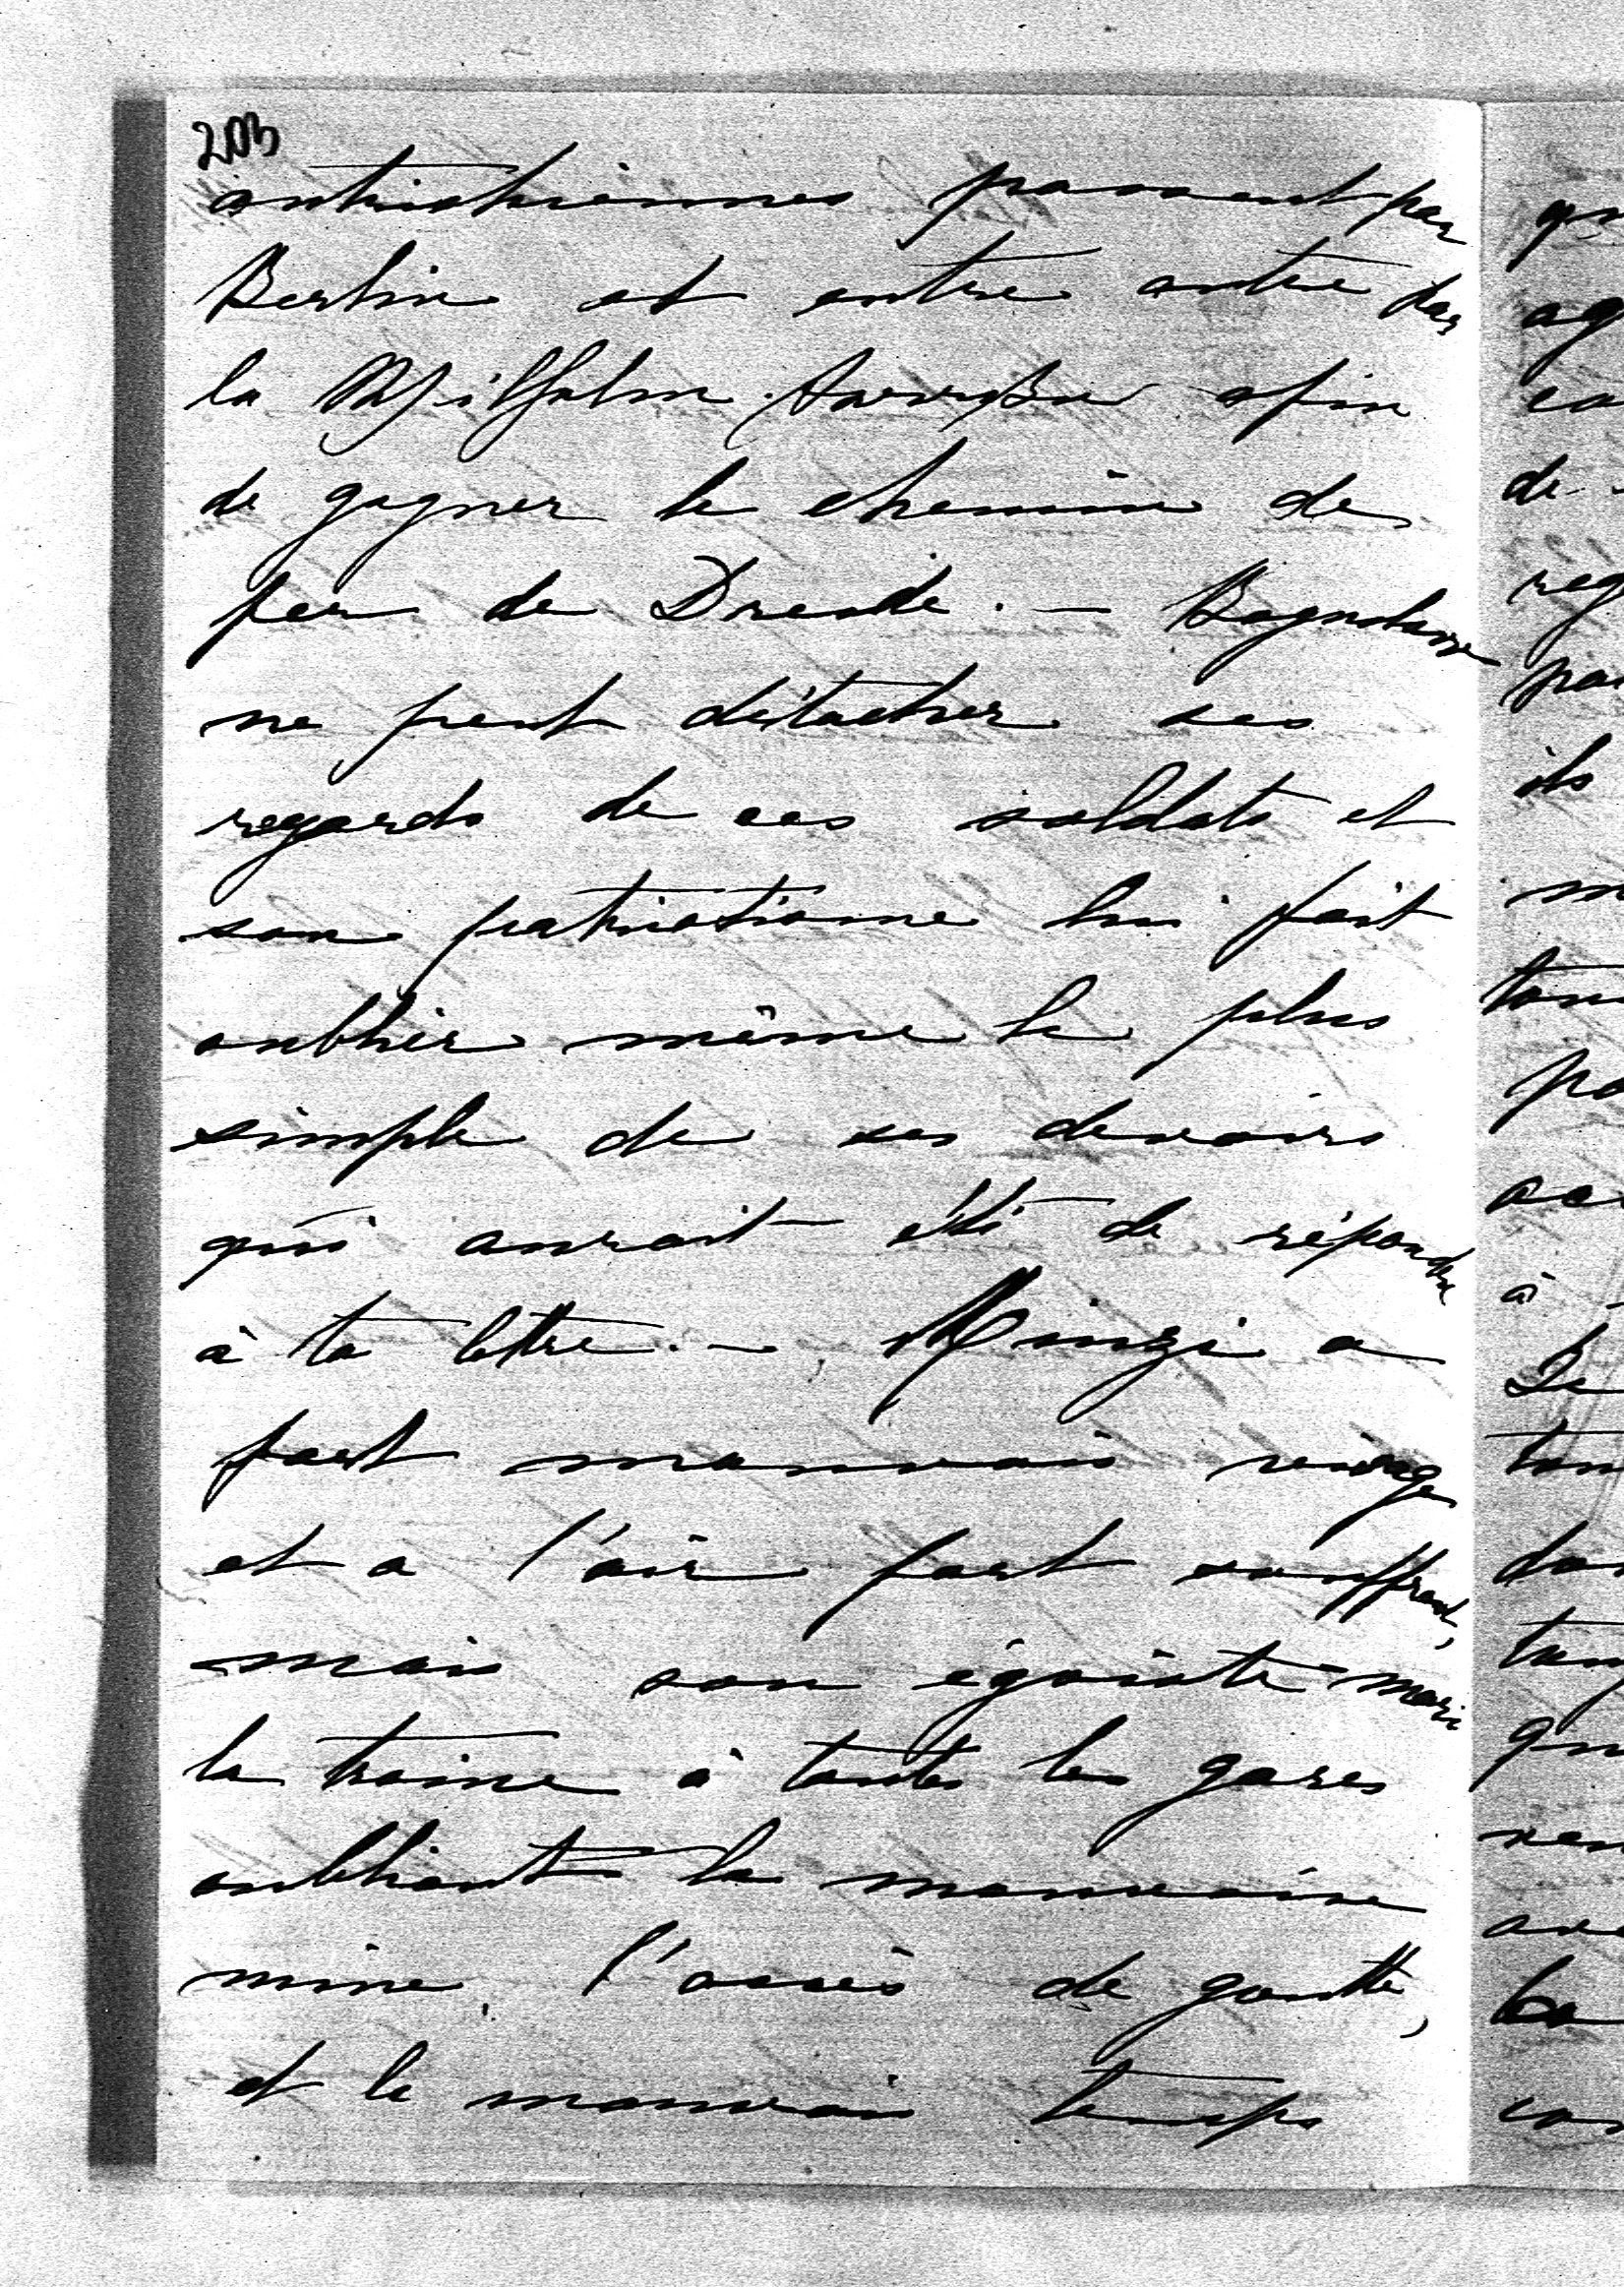 203
autrichiennes passent par
Berlin et entre autre par
la Wilhelmstraße afin
de gagner le chemin de
fer de Dresde. —
ne peut détacher ses
regards de ces soldats et
son patriotisme lui fait
oublier même le plus
simple de ses devoirs
qui aurait été de répondre
à ta lettre. — a
fort mauvais visage
et a l'air fort souffrant,
mais son égoiste mari
la traine à toutes les gares
oubliant la mauvaise
mine, l'accès de goutte,
et le mauvais temps